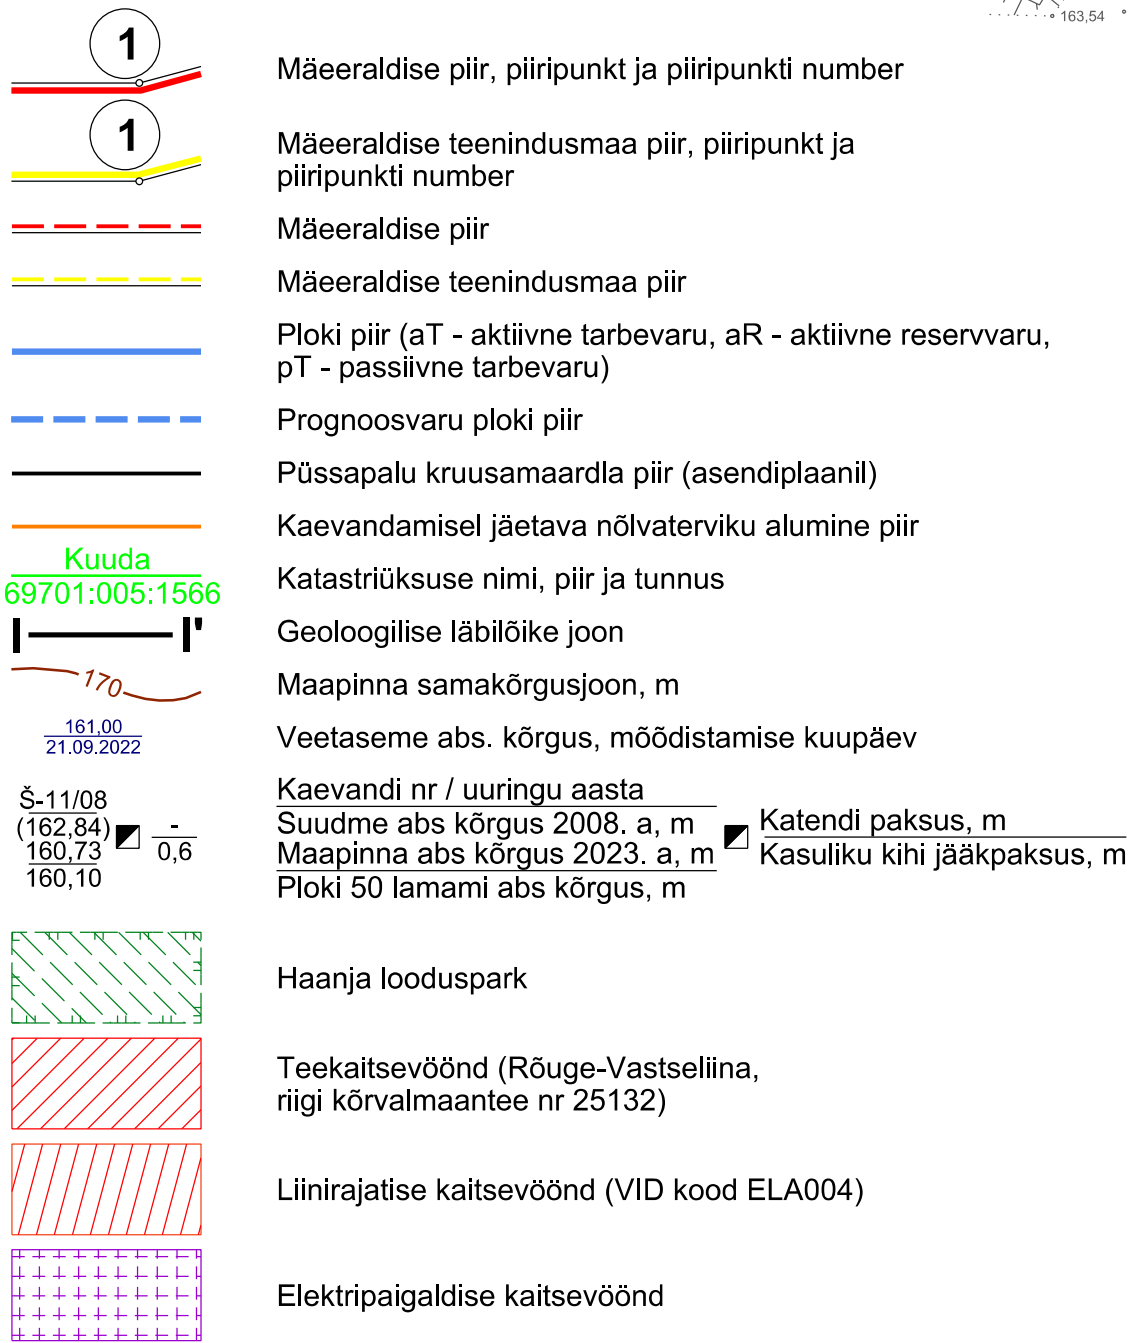 163,54
1
Mäeeraldise piir, piiripunkt ja piiripunkti number
1
Mäeeraldise teenindusmaa piir, piiripunkt ja
piiripunkti number
Mäeeraldise piir
Mäeeraldise teenindusmaa piir
Ploki piir (aT - aktiivne tarbevaru, aR - aktiivne reservvaru,
pT - passiivne tarbevaru)
Prognoosvaru ploki piir
Püssapalu kruusamaardla piir (asendiplaanil)
Kaevandamisel jäetava nõlvaterviku alumine piir
Kuuda
69701:005:1566
Katastriüksuse nimi, piir ja tunnus
I I'
Geoloogilise läbilõike joon
170
Maapinna samakõrgusjoon, m
161,00
21.09.2022
Veetaseme abs. kõrgus, mõõdistamise kuupäev
Š-11/08
(162,84)
160,73
160,10
-
0,6
Kaevandi nr / uuringu aasta
Suudme abs kõrgus 2008. a, m
Maapinna abs kõrgus 2023. a, m
Ploki 50 lamami abs kõrgus, m
Katendi paksus, m
Kasuliku kihi jääkpaksus, m
Haanja looduspark
Teekaitsevöönd (Rõuge-Vastseliina,
riigi kõrvalmaantee nr 25132)
Liinirajatise kaitsevöönd (VID kood ELA004)
Elektripaigaldise kaitsevöönd